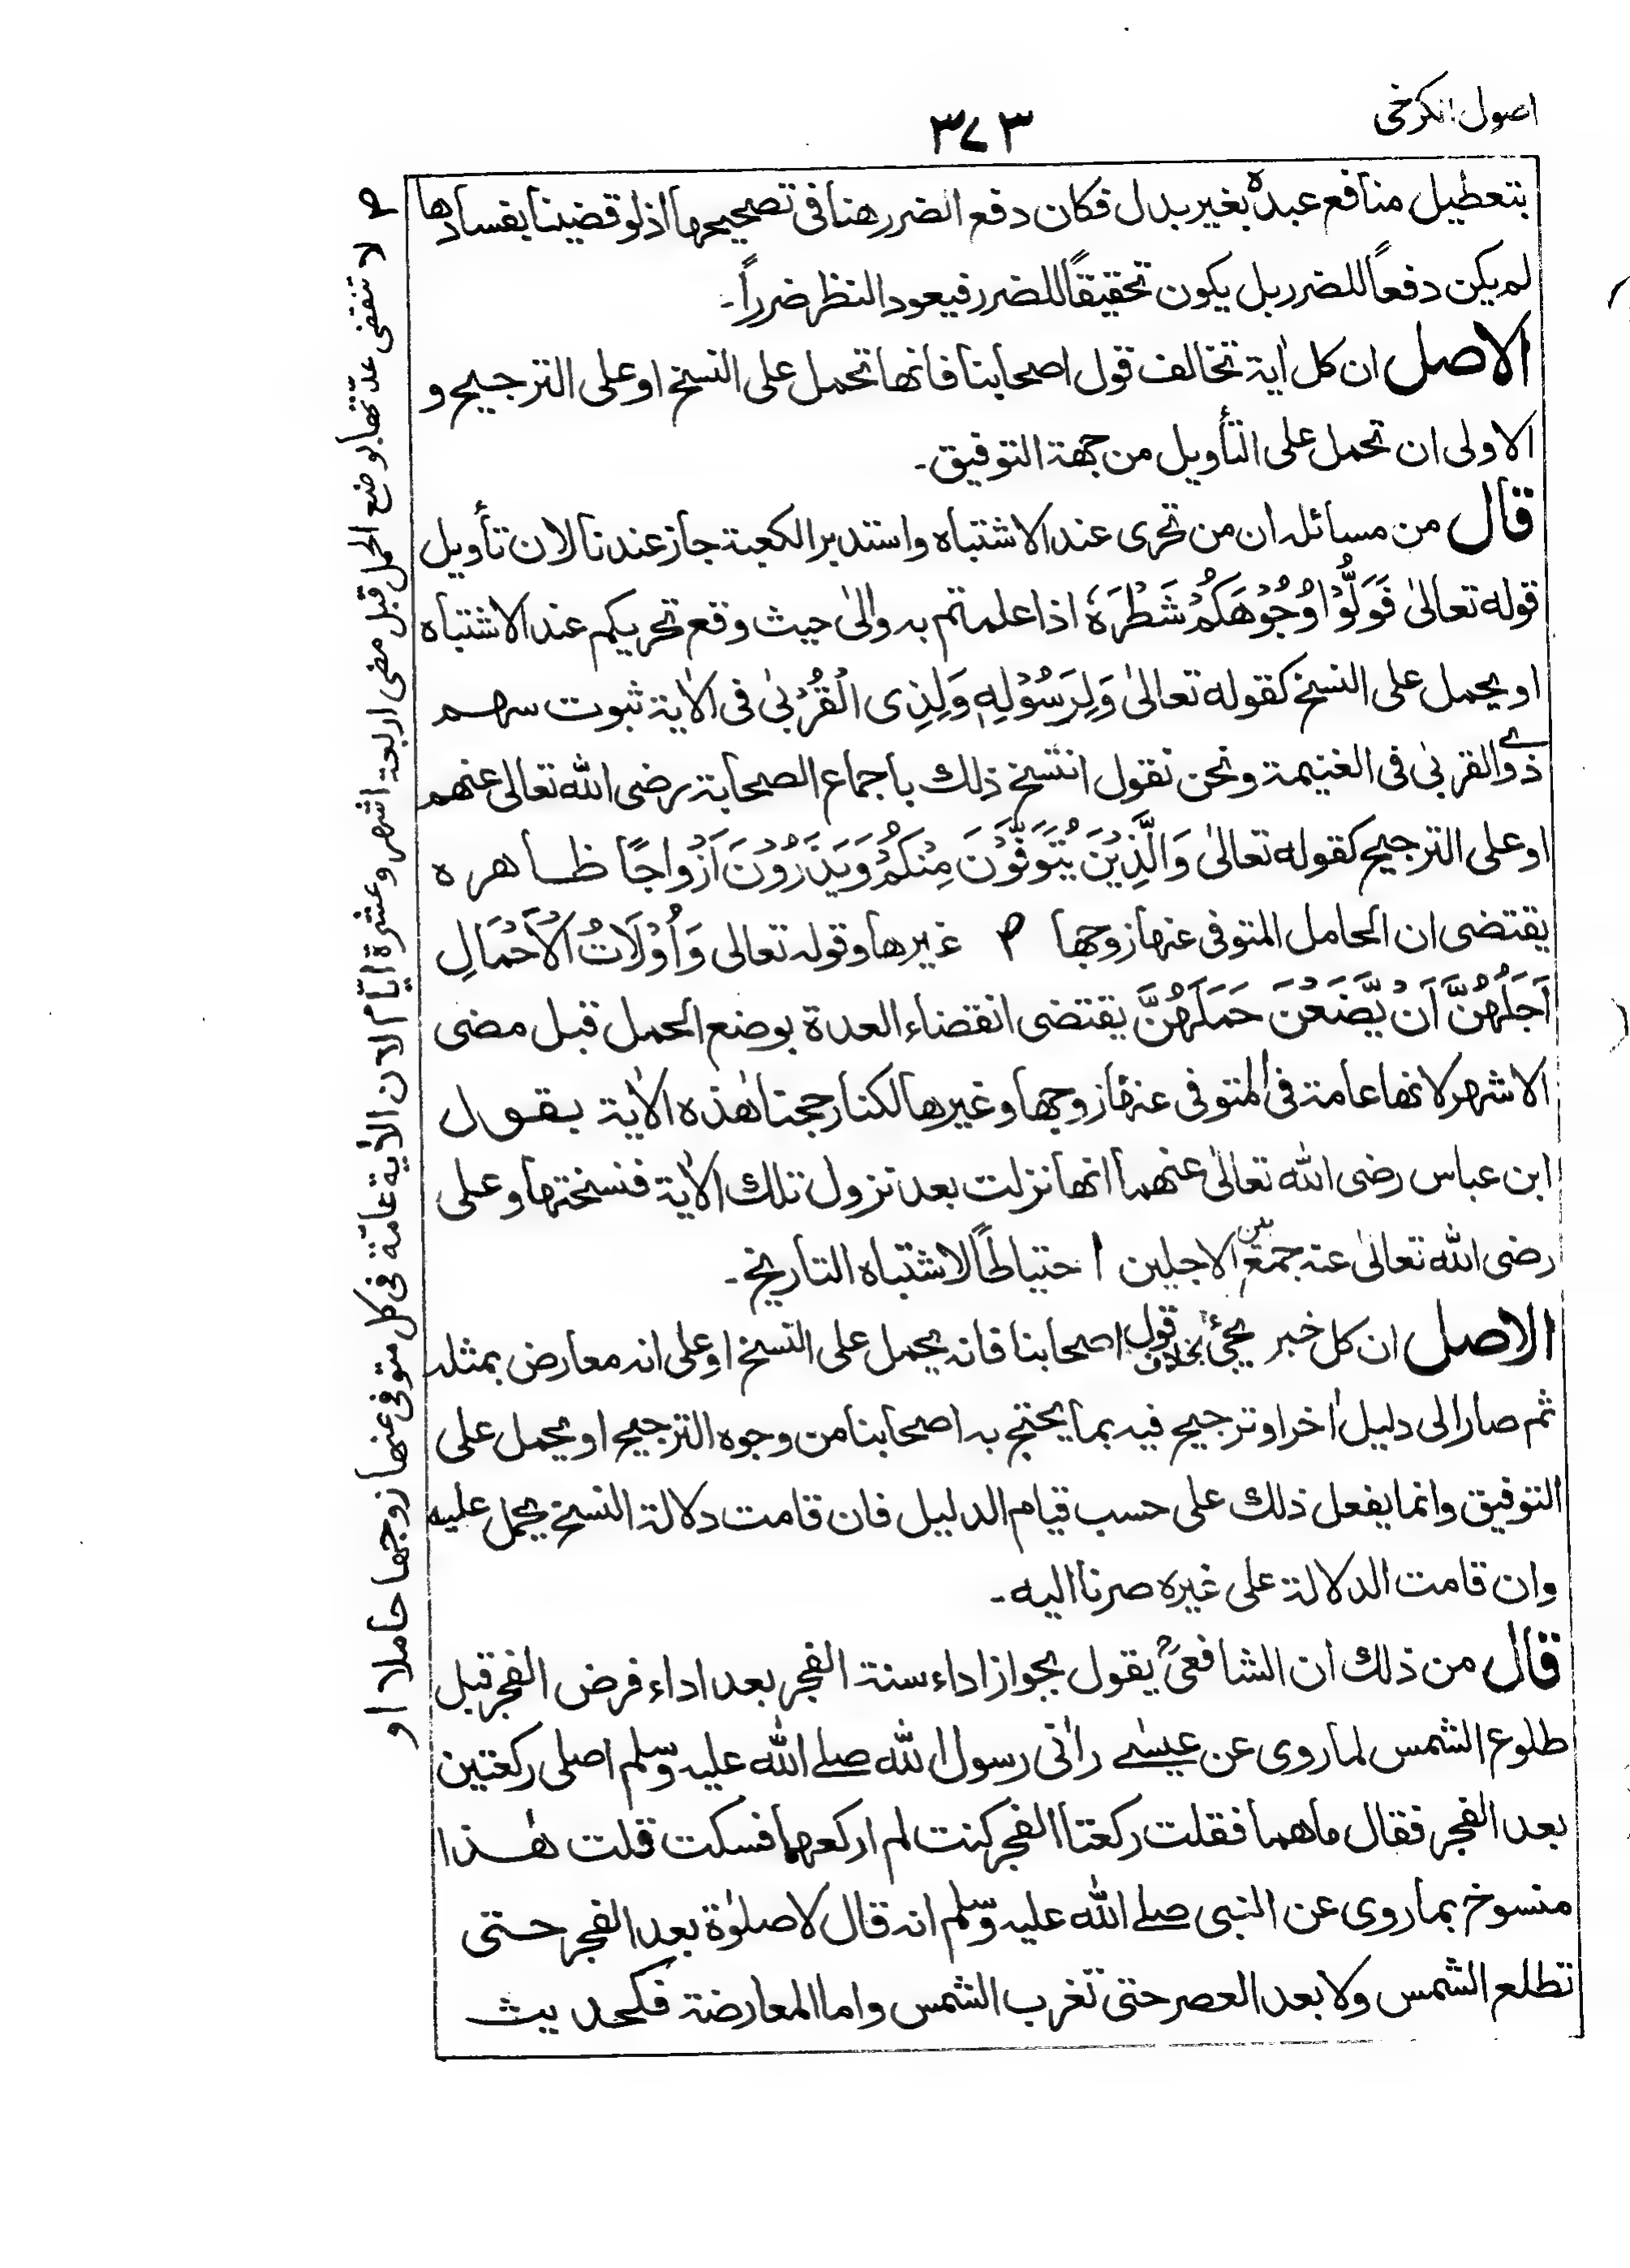 اصول الكرخی
٣٧٣
بتعطيل منافع عبده بغير بدل فكان دفع الضرر هنا فی تصحيحها اذ لو قضينا بفسادها
لم يكن دفعاً للضرر بل يكون تحقيقاً للضرر فيعود النظر ضرراً۔
الاصل ان كل اٰية تخالف قول اصحابنا فانها تحمل على النسخ او على الترجيح و
الاولى ان تحمل على التأويل من جهة التوفيق۔
قال من مسائله ان من تحرى عند الاشتباه واستدبر الكعبة جاز عندنا لان تأويل
قوله تعالىٰ فَوَلُّوْا وُجُوْهَكُمْ شَطْرَهٗ اذا علمتم به والىٰ حيث وقع تحريكم عند الاشتباه
او يحمل على النسخ كقوله تعالىٰ وَلِرَسُوْلِهٖ وَلِذِی الْقُرْبىٰ فی الاٰية ثبوت سهم
ذوے القربىٰ فی الغنيمة ونحن نقول انتسخ ذلك باجماع الصحابة رضی الله تعالى عنهم
او على الترجيح كقوله تعالىٰ وَالَّذِيْنَ يُتَوَفَّوْنَ مِنْكُمْ وَيَذَرُوْنَ اَزْوَاجًا ظاهره
يقتضی ان الحامل المتوفى عنها زوجها ٢ غيرها وقوله تعالى وَاُوْلَاتُ الْاَحْمَالِ
اَجَلُهُنَّ اَنْ يَّضَعْنَ حَمْلَهُنَّ يقتضی انقضاء العدة بوضع الحمل قبل مضی
الاشهر لانها عامة فی المتوفى عنها زوجها وغيرها لكنا رجحنا هٰذه الاٰية بقول
ابن عباس رضی الله تعالىٰ عنهما انها نزلت بعد نزول تلك الاٰية فنسختها وعلی
رضی الله تعالىٰ عنه جمع بين الاجلين احتياطاً لاشتباه التاريخ۔
الاصل ان كل خبر يجئ بخلاف قول اصحابنا فانه يحمل على النسخ او على انه معارض بمثله
ثم صار الى دليل اٰخر او ترجيح فيه بما يحتج به اصحابنا من وجوه الترجيح او يحمل على
التوفيق وانما يفعل ذلك على حسب قيام الدليل فان قامت دلالة النسخ يحمل عليه
وان قامت الدلالة على غيره صرنا اليه۔
قال من ذلك ان الشافعیؒ يقول بجواز اداء سنة الفجر بعد اداء فرض الفجر قبل
طلوع الشمس لما روی عن عيسٰے راٰنی رسول الله صلے الله عليه وسلم اصلی ركعتين
بعد الفجر فقال ما هما فقلت ركعتا الفجر كنت لم اركعهما فسكت قلت هٰذا
منسوخ بما روی عن النبی صلے الله عليه وسلم انه قال لا صلوٰة بعد الفجر حتى
تطلع الشمس ولا بعد العصر حتى تغرب الشمس واما المعارضة فكحديث
٢ لا تنقضی عدّتها بوضع الحمل قبل مضی اربعة اشهر وعشرة ايّام لان الاٰية عامّة فی كل متوفى عنها زوجها حاملا او